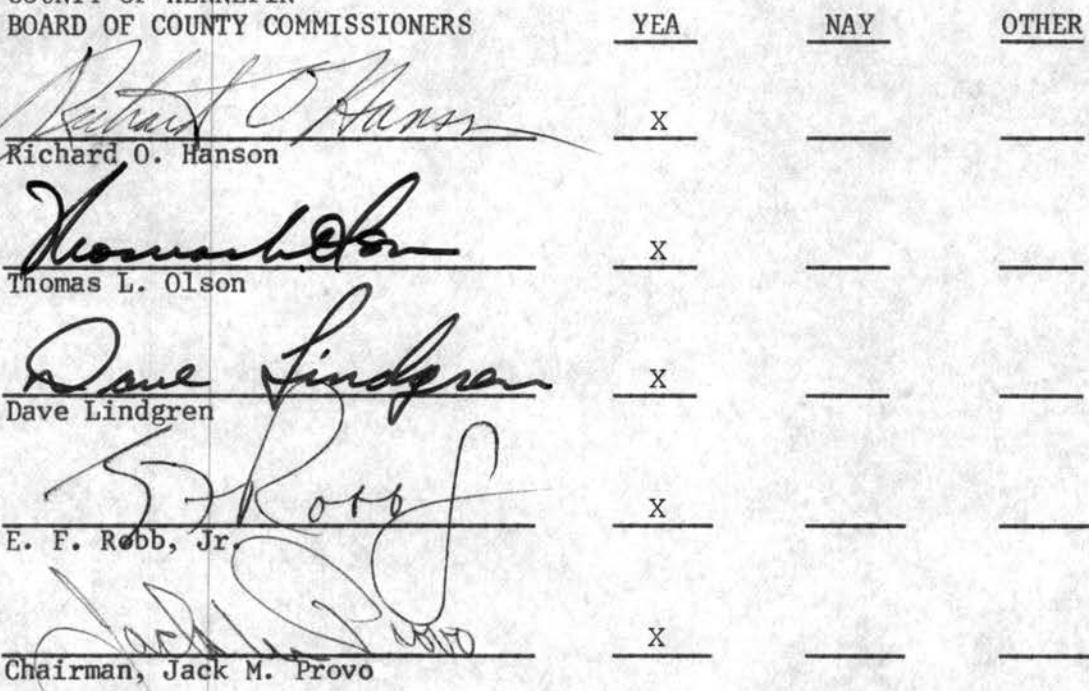 COUNTY OF HENNEPIN
BOARD OF COUNTY COMMISSIONERS YEA NAY OTHER
Richard O Hanson X
Richard O. Hanson
Thomas L Olson X
Thomas L. Olson
Dave Lindgren X
Dave Lindgren
E F Robb X
E. F. Robb, Jr.
Jack M Provo X
Chairman, Jack M. Provo